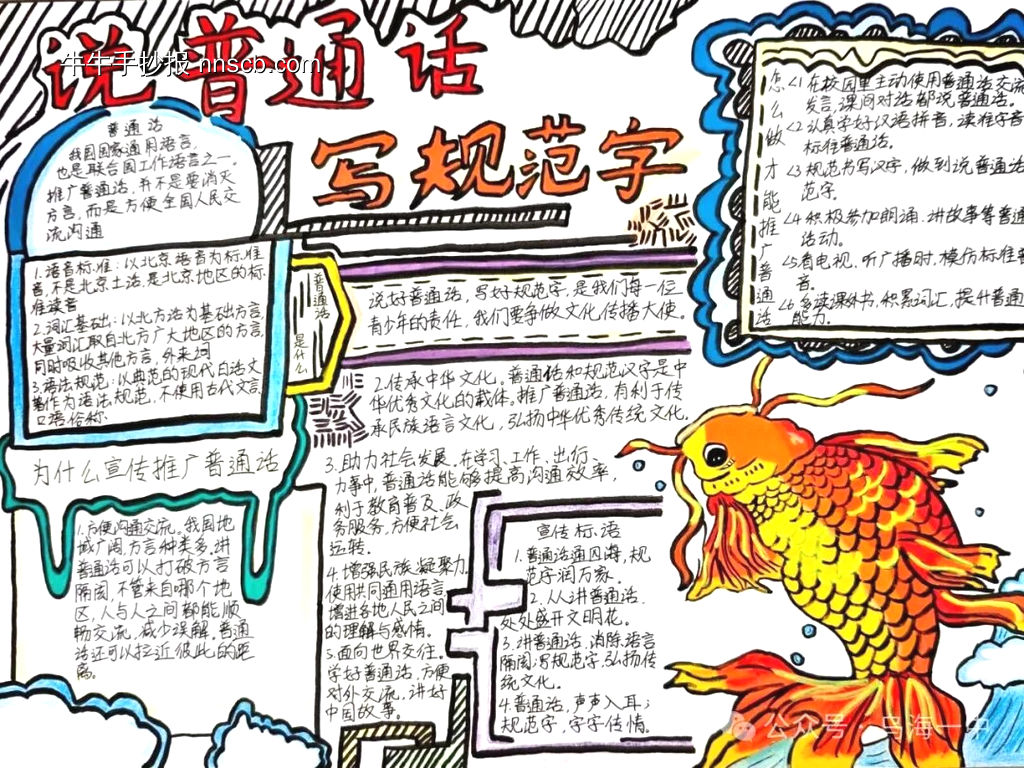 说普通话
牛牛手抄报 nhscb.com
写规范字
普通话
我国国家通用语言,
也是联合国工作语言之一。
推广普通话,并不是要消灭
方言,而是方便全国人民交
流沟通
1.语音标准:以北京语音为标准
音,不是北京土话,是北京地区的标
准读音
2.词汇基础:以北方话为基础方言,
大量词汇取自北方广大地区的方言,
同时吸收其他方言,外来词
3.语法规范:以典范的现代白话文
著作为语法规范,不使用古代文言,
口语俗称.
普通话
是什么
说好普通话,写好规范字,是我们每一位
青少年的责任,我们要争做文化传播大使。
为什么宣传推广普通话
1.方便沟通交流。我国地
域广阔,方言种类多,讲
普通话可以打破方言
隔阂,不管来自哪个地
区,人与人之间都能顺
畅交流,减少误解。普通
话还可以拉近彼此的距
离。
2.传承中华文化。普通话和规范汉字是中
华优秀文化的载体。推广普通话,有利于传
承民族语言文化,弘扬中华优秀传统文化.
3.助力社会发展。在学习、工作、出行、
办事中,普通话能够提高沟通效率,
利于教育普及、政
务服务,方便社会
运转。
4.增强民族凝聚力.
使用共同通用语言,
增进各地人民之间
的理解与感情。
5.面向世界交往。
学好普通话,方便
对外交流,讲好
中国故事。
宣传标语
1.普通话通四海,规
范字润万家。
2.人人讲普通话,
处处盛开文明花。
3.讲普通话,消除语言
隔阂;写规范字,弘扬传
统文化。
4.普通话,声声入耳;
规范字,字字传情。
怎么做才能推广普通话
1在校园里主动使用普通话交流
发言,课间对话都说普通话。
2认真学好汉语拼音,读准字音
标准普通话。
3规范书写汉字,做到说普通话
范字。
4积极参加朗诵、讲故事等普通
活动。
5看电视、听广播时,模仿标准普
音。
6多读课外书,积累词汇,提升普通
能力。
公众号·乌海一中